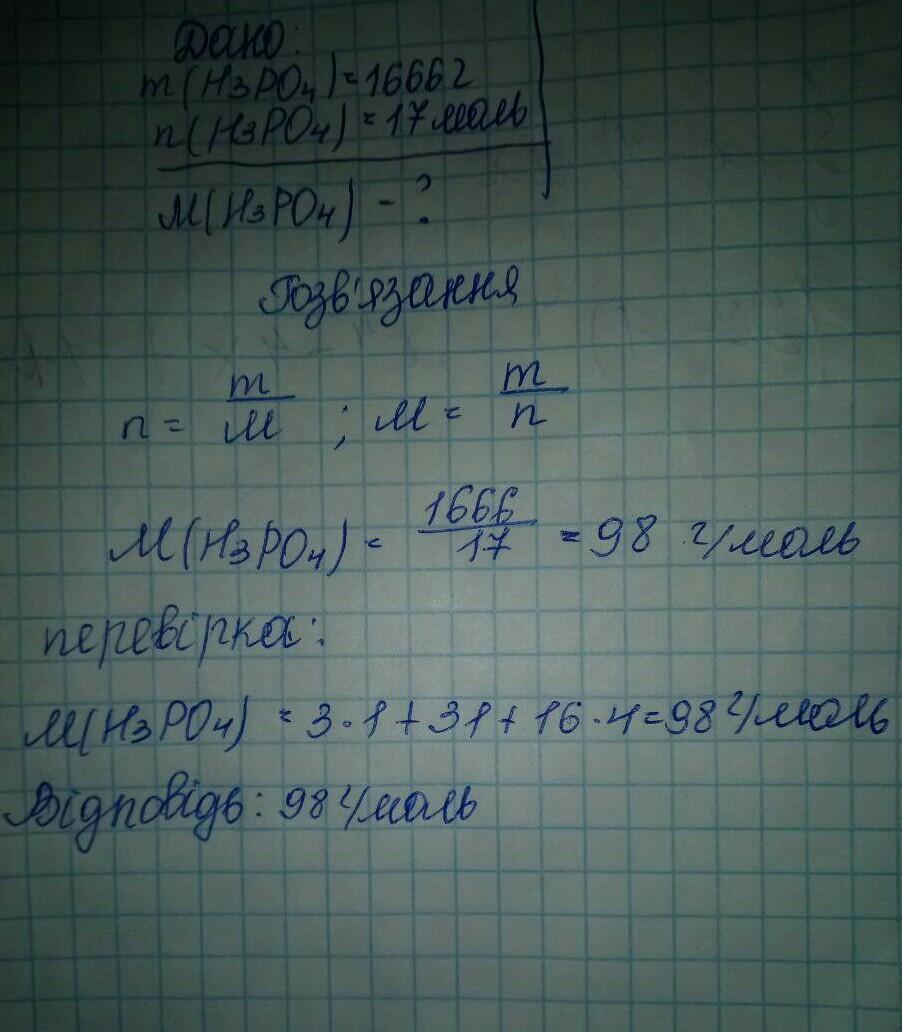 Дано:
m(H3PO4)=1666г
n(H3PO4)=17моль
M(H3PO4) - ?
Розв'язання
n = m/M ; M = m/n
M(H3PO4) = 1666/17 = 98 г/моль
перевірка:
M(H3PO4) = 3·1+31+16·4=98г/моль
Відповідь: 98г/моль